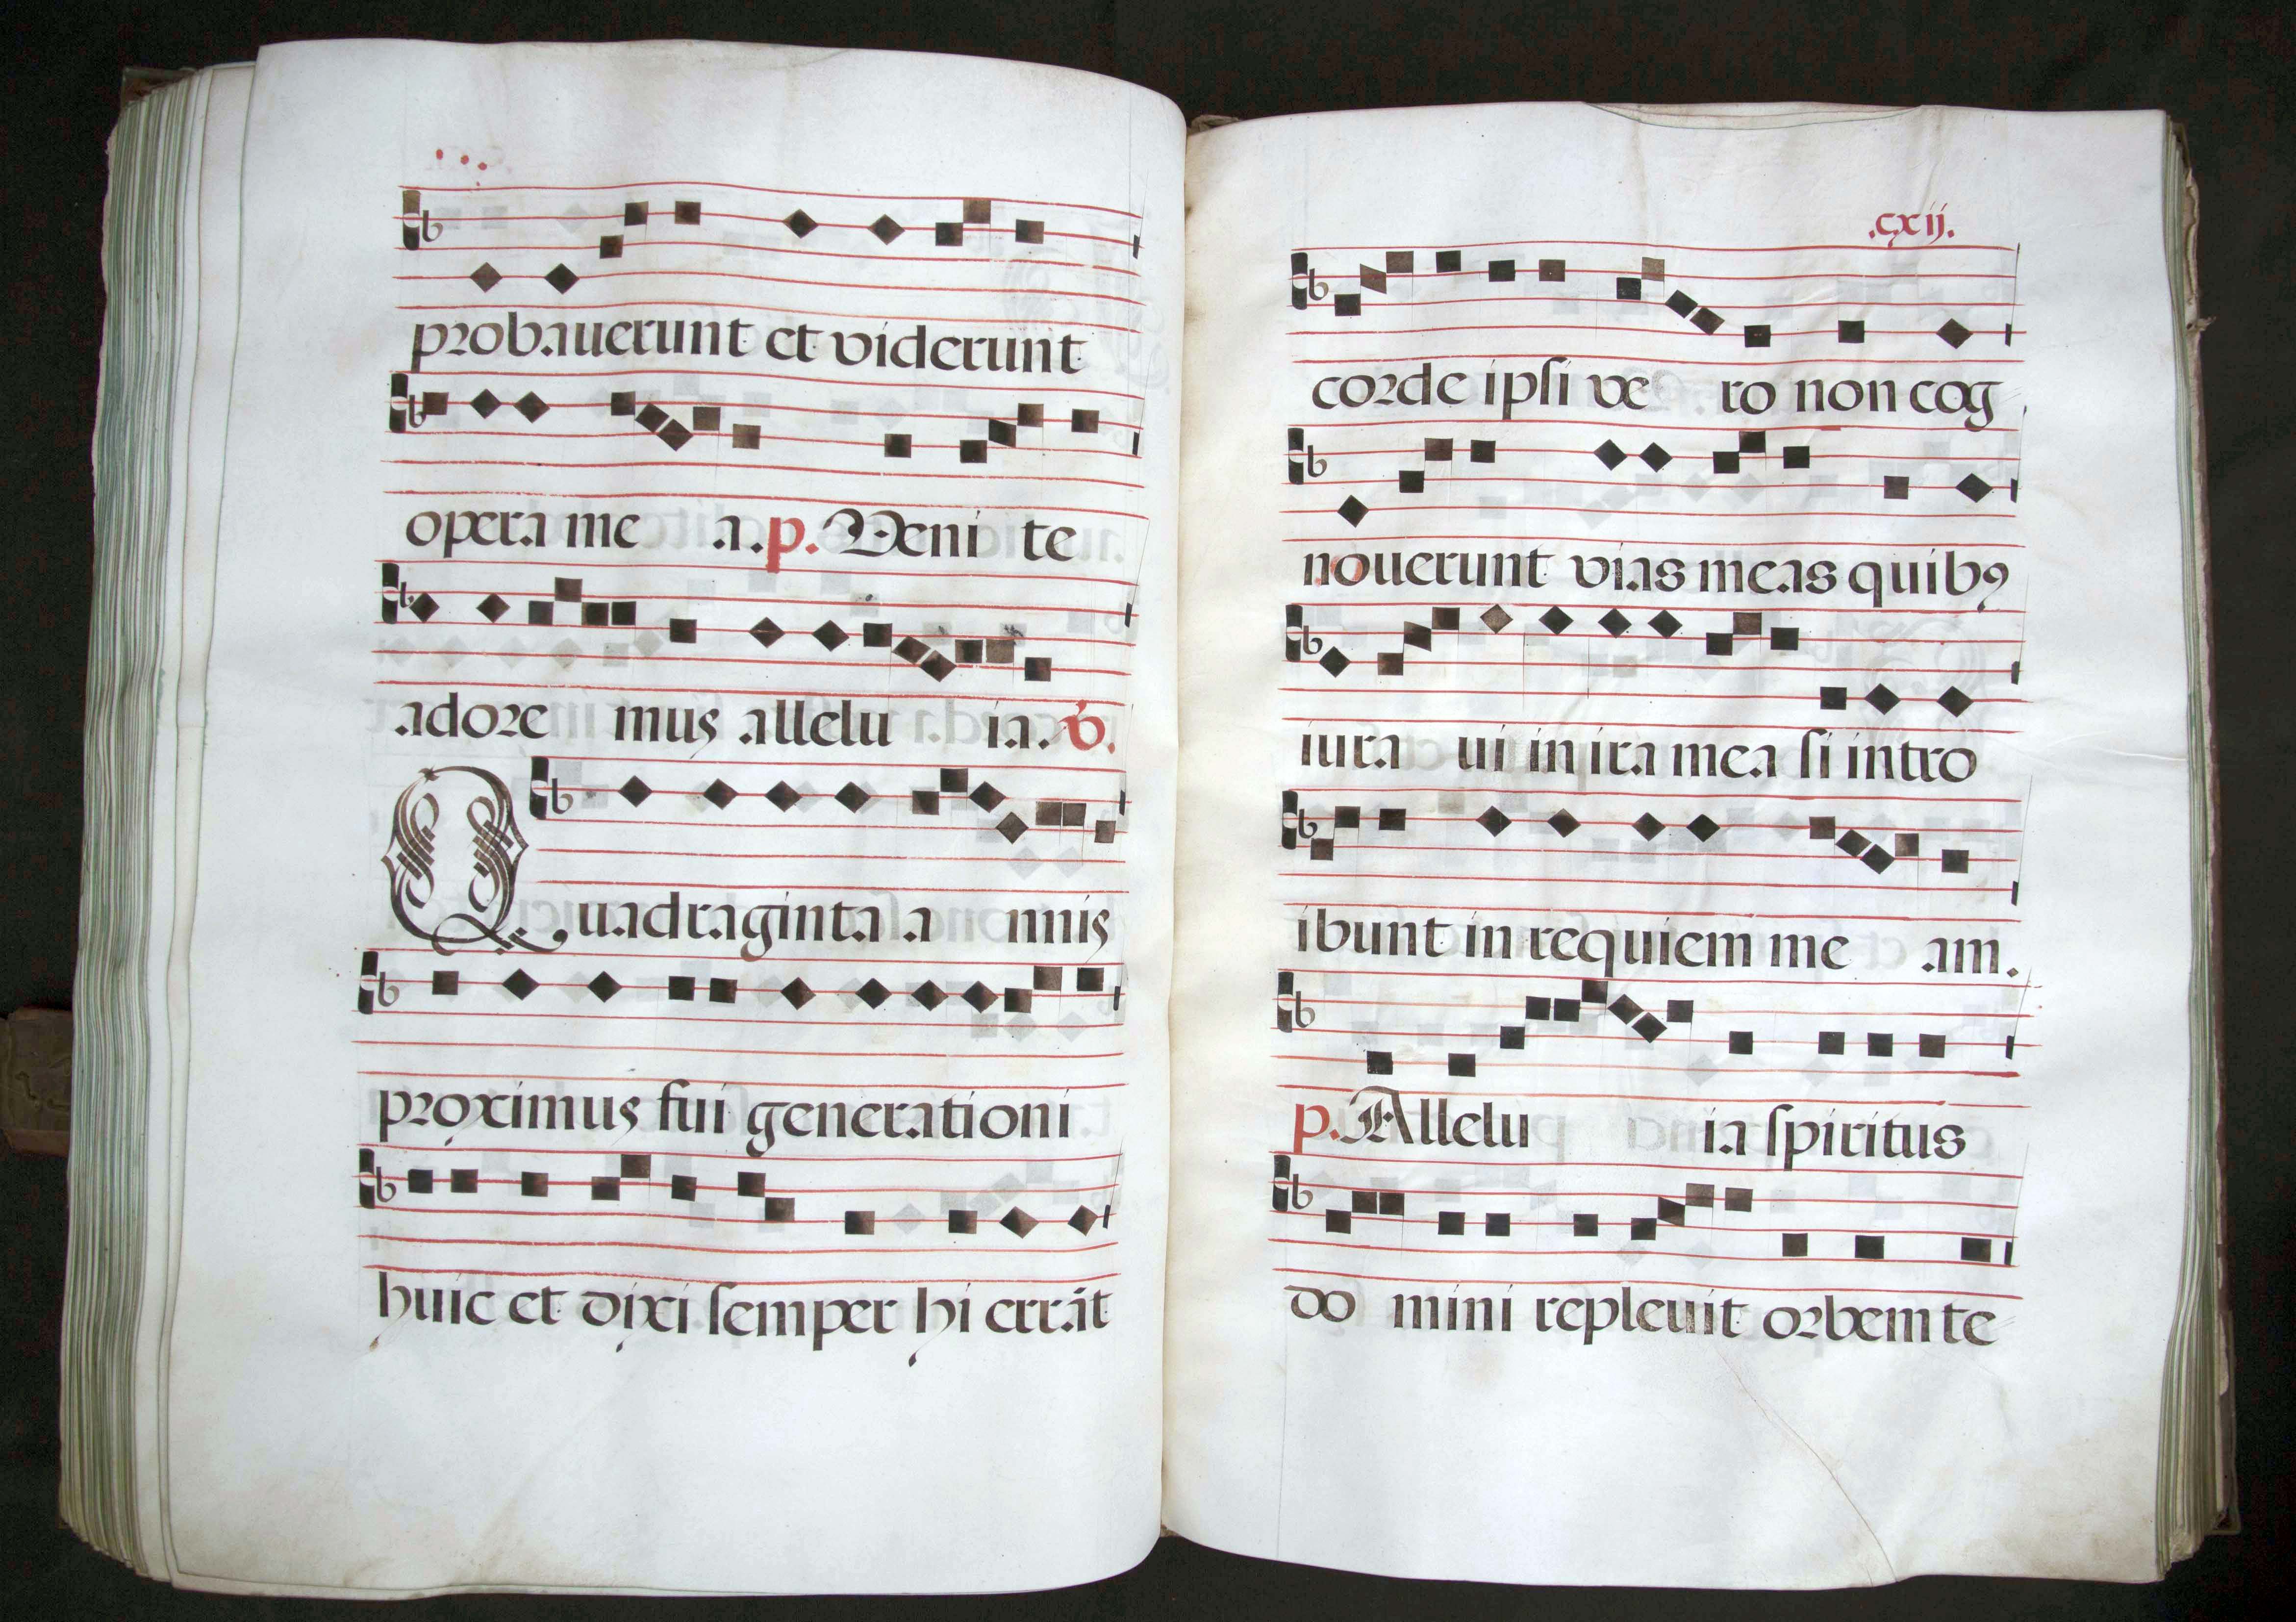 probauerunt et viderunt
opera me a. p. Veni te
adore mus allelu ia. v.
Quadraginta a nnis
proximus fui generationi
huic et dixi semper hi errāt
.cxij.
corde ipsi ve ro non cog
nouerunt vias meas quibꝰ
iura ui in ira mea si intro
ibunt in requiem me am.
p. Allelu ia spiritus
do mini repleuit orbem te